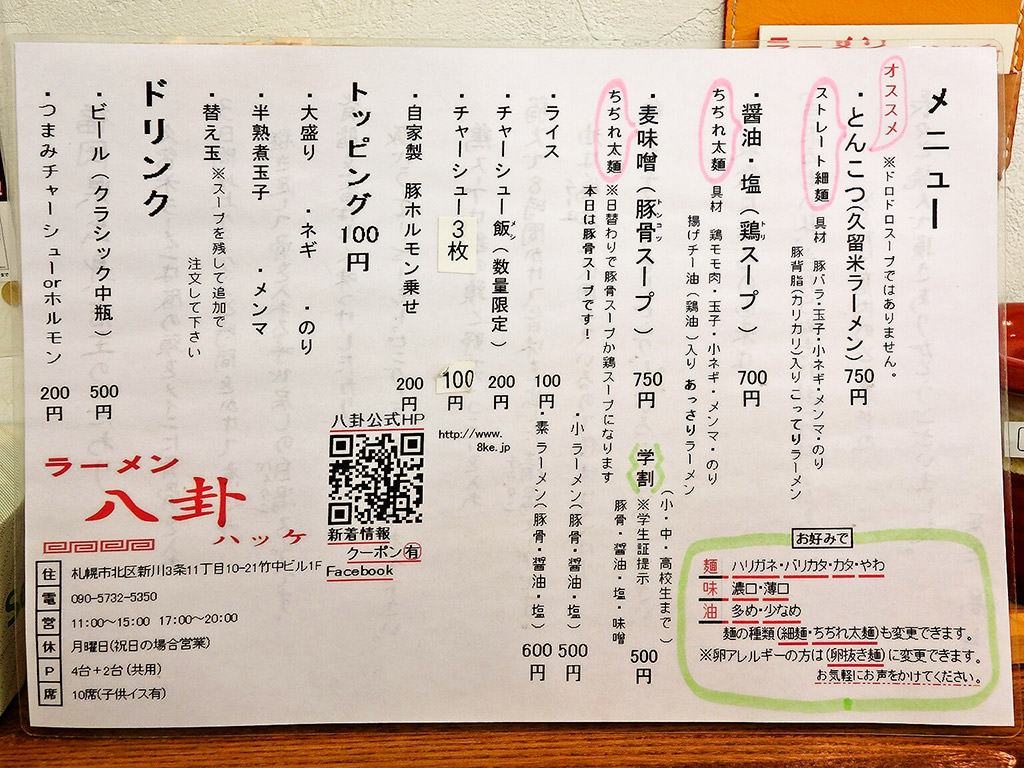 ラーメン
メニュー
オススメ
※ドロドロスープではありません。
・とんこつ(久留米ラーメン) 750円
ストレート細麺
具材 豚バラ・玉子・小ネギ・メンマ・のり
豚背脂(カリカリ)入り こってりラーメン
・醤油・塩(鶏スープ) 700円
トリ
ちぢれ太麺
具材 鶏モモ肉・玉子・小ネギ・メンマ・のり
揚げチー油(鶏油)入り あっさりラーメン
・麦味噌(豚骨スープ) 750円
トンコツ
ちぢれ太麺
※日替わりで豚骨スープか鶏スープになります
本日は豚骨スープです!
学割
(小・中・高校生まで)
※学生証提示
豚骨・醤油・塩・味噌
500円
・ライス 100円
・小 ラーメン(豚骨・醤油・塩) 500円
・素 ラーメン(豚骨・醤油・塩) 600円
・チャーシュー飯(数量限定) 200円
メシ
・チャーシュー3枚 100円
・自家製 豚ホルモン乗せ 200円
トッピング 100円
・大盛り ・ネギ ・のり
・半熟煮玉子 ・メンマ
・替え玉 ※スープを残して追加で
注文して下さい
ドリンク
・ビール(クラシック中瓶) 500円
・つまみチャーシューorホルモン 200円
八卦公式HP
http://www.
8ke.jp
新着情報
クーポン㊒
Facebook
ラーメン
八卦
ハッケ
住 札幌市北区新川3条11丁目10-21竹中ビル1F
電 090-5732-5350
営 11:00～15:00 17:00～20:00
休 月曜日(祝日の場合営業)
P 4台+2台(共用)
席 10席(子供イス有)
お好みで
麺 ハリガネ・バリカタ・カタ・やわ
味 濃口・薄口
油 多め・少なめ
麺の種類(細麺・ちぢれ太麺)も変更できます。
※卵アレルギーの方は(卵抜き麺)に変更できます。
お気軽にお声をかけてください。